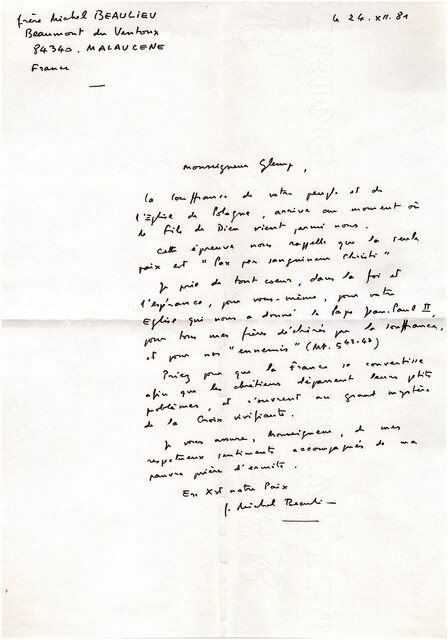 frère Michel BEAULIEU
Beaumont du Ventoux
84340. MALAUCENE
France
le 24. XII. 81
Monseigneur Glemp,
La souffrance de votre peuple et de
l'Eglise de Pologne, arrive au moment où
le Fils de Dieu vient parmi nous.
Cette épreuve nous rappelle que la seule
paix est "Pax per sanguinem Christi"
Je prie de tout coeur, dans la foi et
l'espérance, pour vous-même, pour votre
Eglise qui nous a donné le Pape Jean-Paul II,
pour tous mes frères déchirés par la souffrance,
et pour nos "ennemis" (Mt. 5 43-48)
Priez pour que la France se convertisse
afin que les chrétiens dépassent leurs ptits
problèmes, et s'ouvrent au grand mystère
de la Croix vivifiante.
Je vous assure, Monseigneur, de mes
respectueux sentiments accompagnés de ma
pauvre prière d'ermite.
En Xst notre Paix
f. Michel Beaulieu